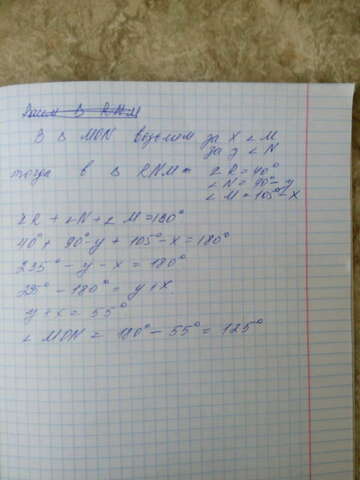 В △ MON возьмем за X ∠ M
за y ∠ N
тогда в △ RNM ∠ R = 40°
∠ N = 90° - y
∠ M = 105° - x
∠ R + ∠ N + ∠ M = 180°
40° + 90° - y + 105° - x = 180°
235° - y - x = 180°
235° - 180° = y + x
y + x = 55°
∠ MON = 180° - 55° = 125°